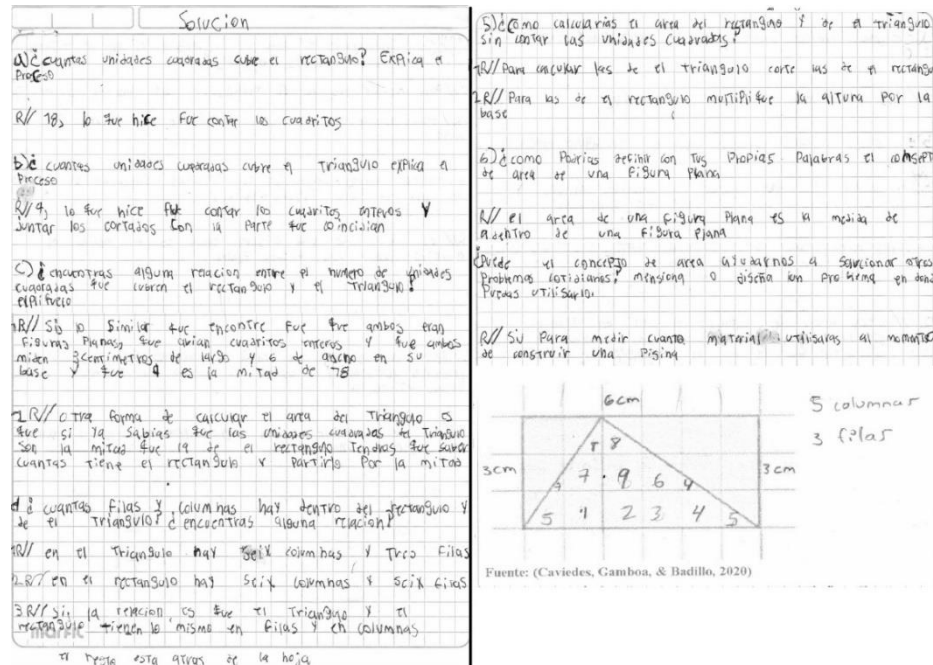 Solucion
a) ¿cuantas unidades cuadradas cubre el rectangulo? Explica el
Proceso
R// 18, lo que hice fue contar los cuadritos
b) ¿cuantas unidades cuadradas cubre el triangulo explica el
Proceso
R// 9, lo que hice fue contar los cuadritos enteros y
juntar los cortados con la parte que coincidian
c) ¿encuentras alguna relacion entre el numero de unidades
cuadradas que cubren el rectangulo y el triangulo?
1R// Si, lo similar que encontre fue que ambos eran
figuras planas, que avian cuadritos enteros y que ambos
miden 3centimetros de largo y 6 de ancho en su
base y que 9 es la mitad de 18
2R// otra forma de calcular el area del triangulo es
que si ya sabias que las unidades cuadradas del triangulo
son la mitad que la de el rectangulo tendras que saber
cuantas tiene el rectangulo y partirlo por la mitad
d ¿cuantas filas y columnas hay dentro del rectangulo y
de el triangulo? ¿encuentras alguna relacion?
1R// en el triangulo hay seix columnas y tres filas
2R// en el rectangulo hay seix columnas y seix filas
3R// si, la relacion es que el triangulo y el
rectangulo tienen lo mismo en filas y en columnas
el resto esta atras de la hoja
5) ¿Como calcularias el area del rectangulo y de el triangulo
sin contar las unidades cuadradas?
1R// Para calcular las de el triangulo corte las de el
2R// Para las de el rectangulo multiplique la altura por la
base
6) ¿como podrias definir con tus propias palabras el
de area de una figura plana
R// el area de una figura plana es la medida de
adentro de una figura plana
¿Puede el concepto de area ayudarnos a solucionar otros
problemas cotidianos? mensiona o diseña un problema en
puedas utilisarlo.
R// Si Para medir cuanto material utilisaras al momento
de construir una pisina
6cm
5 columnas
3 filas
8
3cm
7 9 6
3cm
5 1 2 3 4 5
Fuente: (Caviedes, Gamboa, & Badillo, 2020)